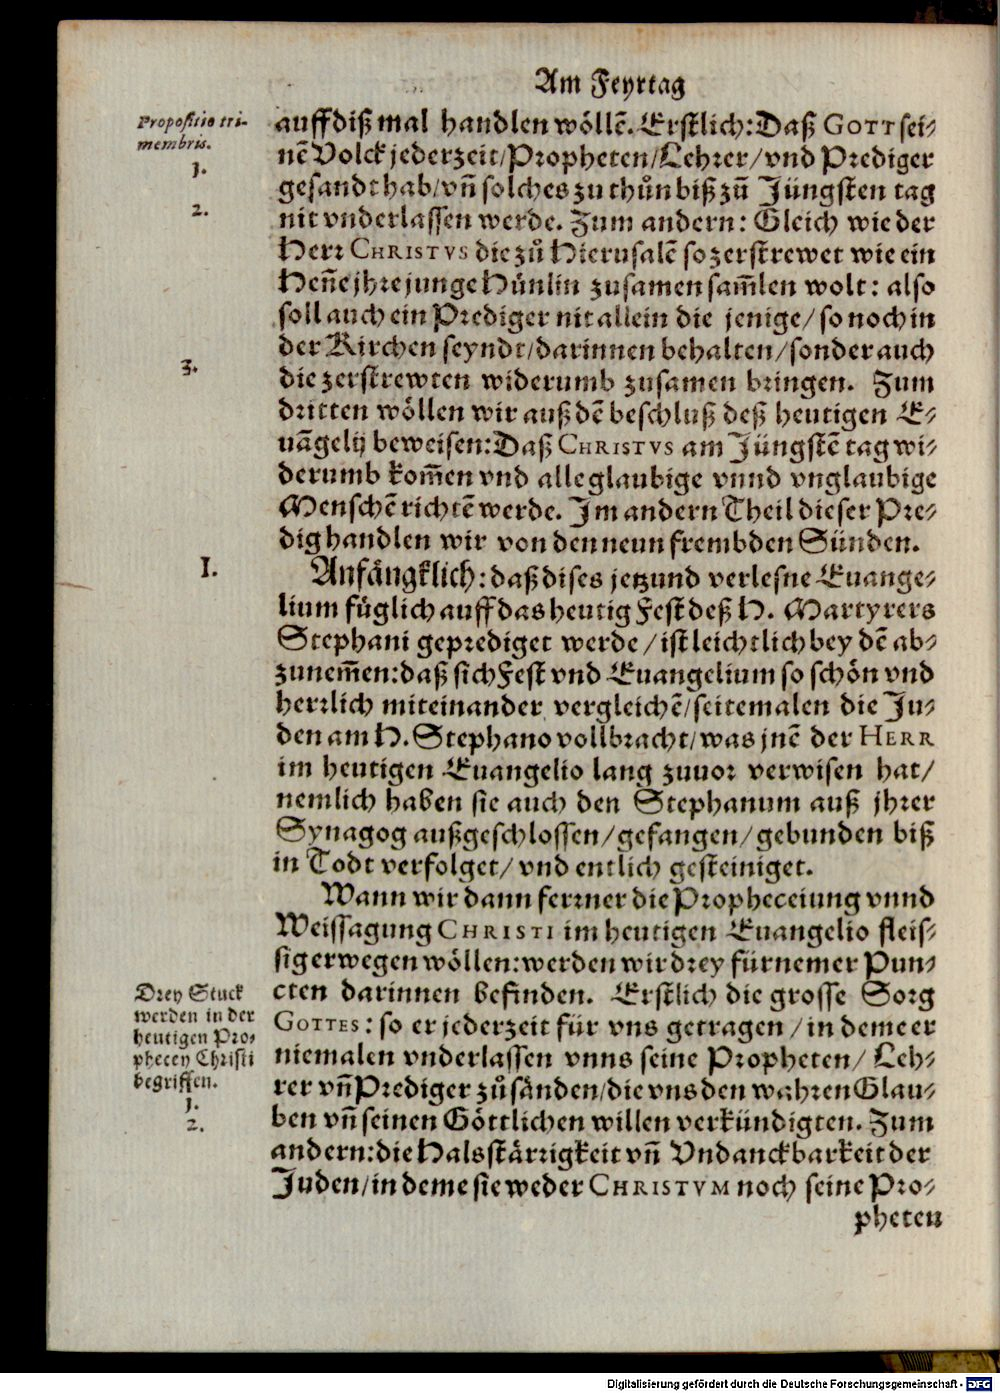 Am Feyrtag
Propositio tri-
membris.
1.
2.
3.
auff diß mal handlen wöllẽ. Erstlich: Daß GOTT sei-
nẽ Volck jederzeit/Propheten/Lehrer/vnd Prediger
gesandt hab/vñ solches zu thůn biß zũ Jüngsten tag
nit vnderlassen werde. Zum andern: Gleich wie der
Herr CHRISTVS die zů Hierusalẽ so zerstrewet wie ein
Heñe jhre junge Hůnlin zusamen sam̃len wolt: also
soll auch ein Prediger nit allein die jenige/ so noch in
der Kirchen seyndt/darinnen behalten/sonder auch
die zerstrewten widerumb zusamen bringen. Zum
dritten wöllen wir auß dẽ beschluß deß heutigen E-
uãgelij beweisen: Daß CHRISTVS am Jüngstẽ tag wi-
derumb kom̃en vnd alle glaubige vnnd vnglaubige
Menschẽ richtẽ werde. Im andern Theil dieser Pre-
dig handlen wir von den neun frembden Sünden.
I.
Anfängklich: daß dises jetzund verlesne Euange-
lium füglich auff das heutig Fest deß H. Martyrers
Stephani geprediget werde/ ist leichtlich bey dẽ ab-
zunem̃en: daß sich Fest vnd Euangelium so schön vnd
herrlich miteinander vergleichẽ/seitemalen die Ju-
den am H. Stephano vollbracht/was jnẽ der HERR
im heutigen Euangelio lang zuuor verwisen hat/
nemlich haben sie auch den Stephanum auß jhrer
Synagog außgeschlossen/gefangen/gebunden biß
in Todt verfolget/ vnd entlich gesteiniget.
Wann wir dann ferrner die Propheceiung vnnd
Weissagung CHRISTI im heutigen Euangelio fleis-
sig erwegen wöllen: werden wir drey fürnemer Pun-
cten darinnen befinden. Erstlich die grosse Sorg
GOTTES: so er jederzeit für vns getragen/in deme er
niemalen vnderlassen vnns seine Propheten/ Leh-
rer vñ Prediger zů sänden/die vns den wahren Glau-
ben vñ seinen Göttlichen willen verkündigten. Zum
andern: die Halsstärrigkeit vñ Vndanckbarkeit der
Juden/in deme sie weder CHRISTVM noch seine Pro-
Drey Stuck
werden in der
heutigen Pro-
phecey Christi
begriffen.
1.
2.
pheten
Digitalisierung gefördert durch die Deutsche Forschungsgemeinschaft - DFG